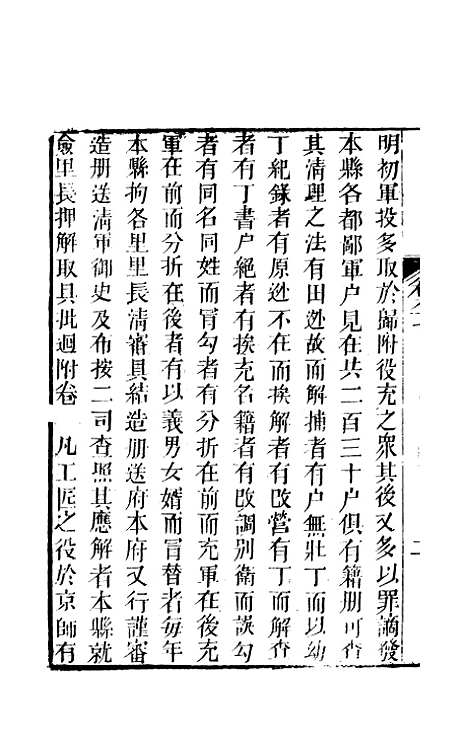 明初軍役多取於歸附投充之衆其後又多以罪謫發
本縣各都鄙軍户見在共二百三十户俱有籍册可查
其淸理之法有田迯故而解捕者有户無壯丁而以幼
丁紀錄者有原迯不在而挨解者有改營有丁而解查
者有丁書户絕者有挨充名籍者有改調別衛而誤勾
者有同名同姓而冐勾者有分折在前而充軍在後充
軍在前而分折在後者有以義男女婿而冐替者每年
本縣拘各里里長淸審具結造册送府本府又行謹審
造册送淸軍御史及布按二司查照其應解者本縣就
僉里長押解取具批迴附卷 凡工匠之役於京師有
二